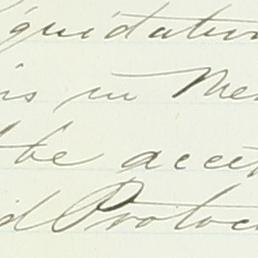 iquidation
is in Mex
the accep
id Protoc